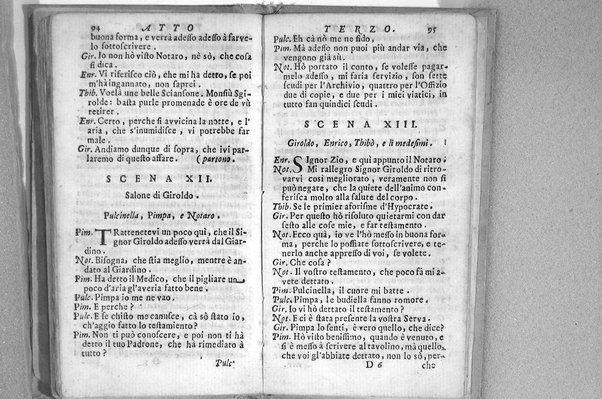 94 ATTO
buona forma, e verrà adesso adesso à farve-
lo sottoscrivere.
Gir. Io non hò visto Notaro, nè sò, che cosa
si dica.
Enr. Vi riferisco ciò, che mi ha detto, se poi
m'hà ingannato, non saprei.
Thib. Voelà une belle Sciansone. Monsiù Sgi-
rolde: basta purle promenade è ore de vù
retirer.
Enr. Certo, perche si avvicina la notte, e l'
aria, che s'inumidisce, vi potrebbe far
male.
Gir. Andiamo dunque di sopra, che ivi par-
laremo di questo affare. (partono.
SCENA XII.
Salone di Giroldo.
Pulcinella, Pimpa, e Notaro.
Pim. TRattenetevi un poco quì, che il Si-
gnor Giroldo adesso verrà dal Giar-
dino.
Not. Bisogna, che stia meglio, mentre è an-
dato al Giardino.
Pim. Ha detto il Medico, che il pigliare un
poco d'aria gl'averia fatto bene.
Pulc. Pimpa io me ne vao.
Pim. E perche?
Pulc. E se chisto me canusce, cà sò stato io,
ch'aggio fatto lo testamiento?
Pim. Non ti può conoscere, e poi non ti hà
detto il tuo Padrone, che hà rimediato à
tutto?
Pulc.
TERZO. 95
Pulc. Eh cà nò me ne fido.
Pim. Mà adesso non puoi più andar via, che
vengono già sù.
Not. Hò portato il conto, se volesse pagar-
melo adesso, mi faria servizio, son sette
scudi per l'Archivio, quattro per l'Offizio
due di copie, e due per i miei viatici, in
tutto fan quindici scudi.
SCENA XIII.
Giroldo, Enrico, Thibò, e li medesimi.
Enr. SIgnor Zio, e quì appunto il Notaro.
Not. Mi rallegro Signor Giroldo di ritro-
varvi così megliorato, veramente non si
può negare, che la quiete dell'animo con-
ferisca molto alla salute del corpo.
Thib. Se le primier aforisme d'Hypocrate.
Gir. Per questo hò risoluto quietarmi con dar
sesto alle cose mie, e far testamento.
Not. Ecco quà, io ve l'hò messo in buona for-
ma, perche lo possiate sottoscrivere, e te-
nerlo anche appresso di voi, se volete.
Gir. Che cosa?
Not. Il vostro testamento, che poco fà mi a-
vete dettato.
Pim. Pulcinella, il cuore mi batte.
Pulc. Pimpa, le budiella fanno romore.
Gir. Io vi hò dettato il testamento?
Not. E ci è stata presente la vostra Serva.
Gir. Pimpa lo senti, è vero quello, che dice?
Pim. Hò visto benissimo, quando è venuto, e
si è messo à scrivere al tavolino, mà quello
che voi gl'abbiate dettato, non lo sò, per-
D 6 che